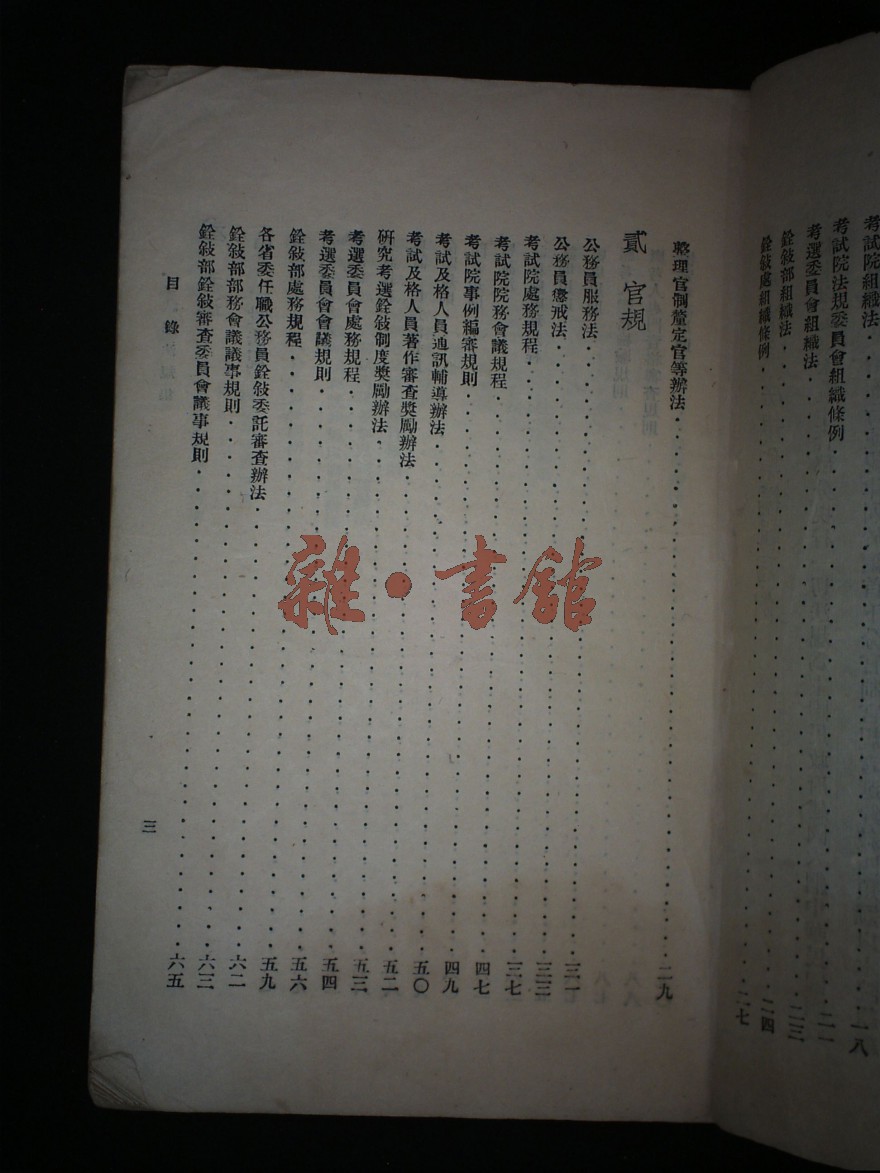 考試院組織法 一八
考試院法規委員會組織條例 二一
考選委員會組織法 二三
銓敍部組織法 二四
銓敍處組織條例 二七
整理官制釐定官等辦法 二九
貳 官規
公務員服務法 三一
公務員懲戒法 三三
考試院處務規程 三七
考試院院務會議規程 四七
考試院事例編審規則 四九
考試及格人員通訊輔導辦法 五〇
考試及格人員著作審查獎勵辦法 五二
研究考選銓敍制度獎勵辦法 五三
考選委員會處務規程 五四
考選委員會會議規則 五六
銓敍部處務規程 五九
各省委任職公務員銓敍委託審查辦法 六二
銓敍部部務會議議事規則 六三
銓敍部銓敍審查委員會議事規則 六五
目錄
三
雜·書館